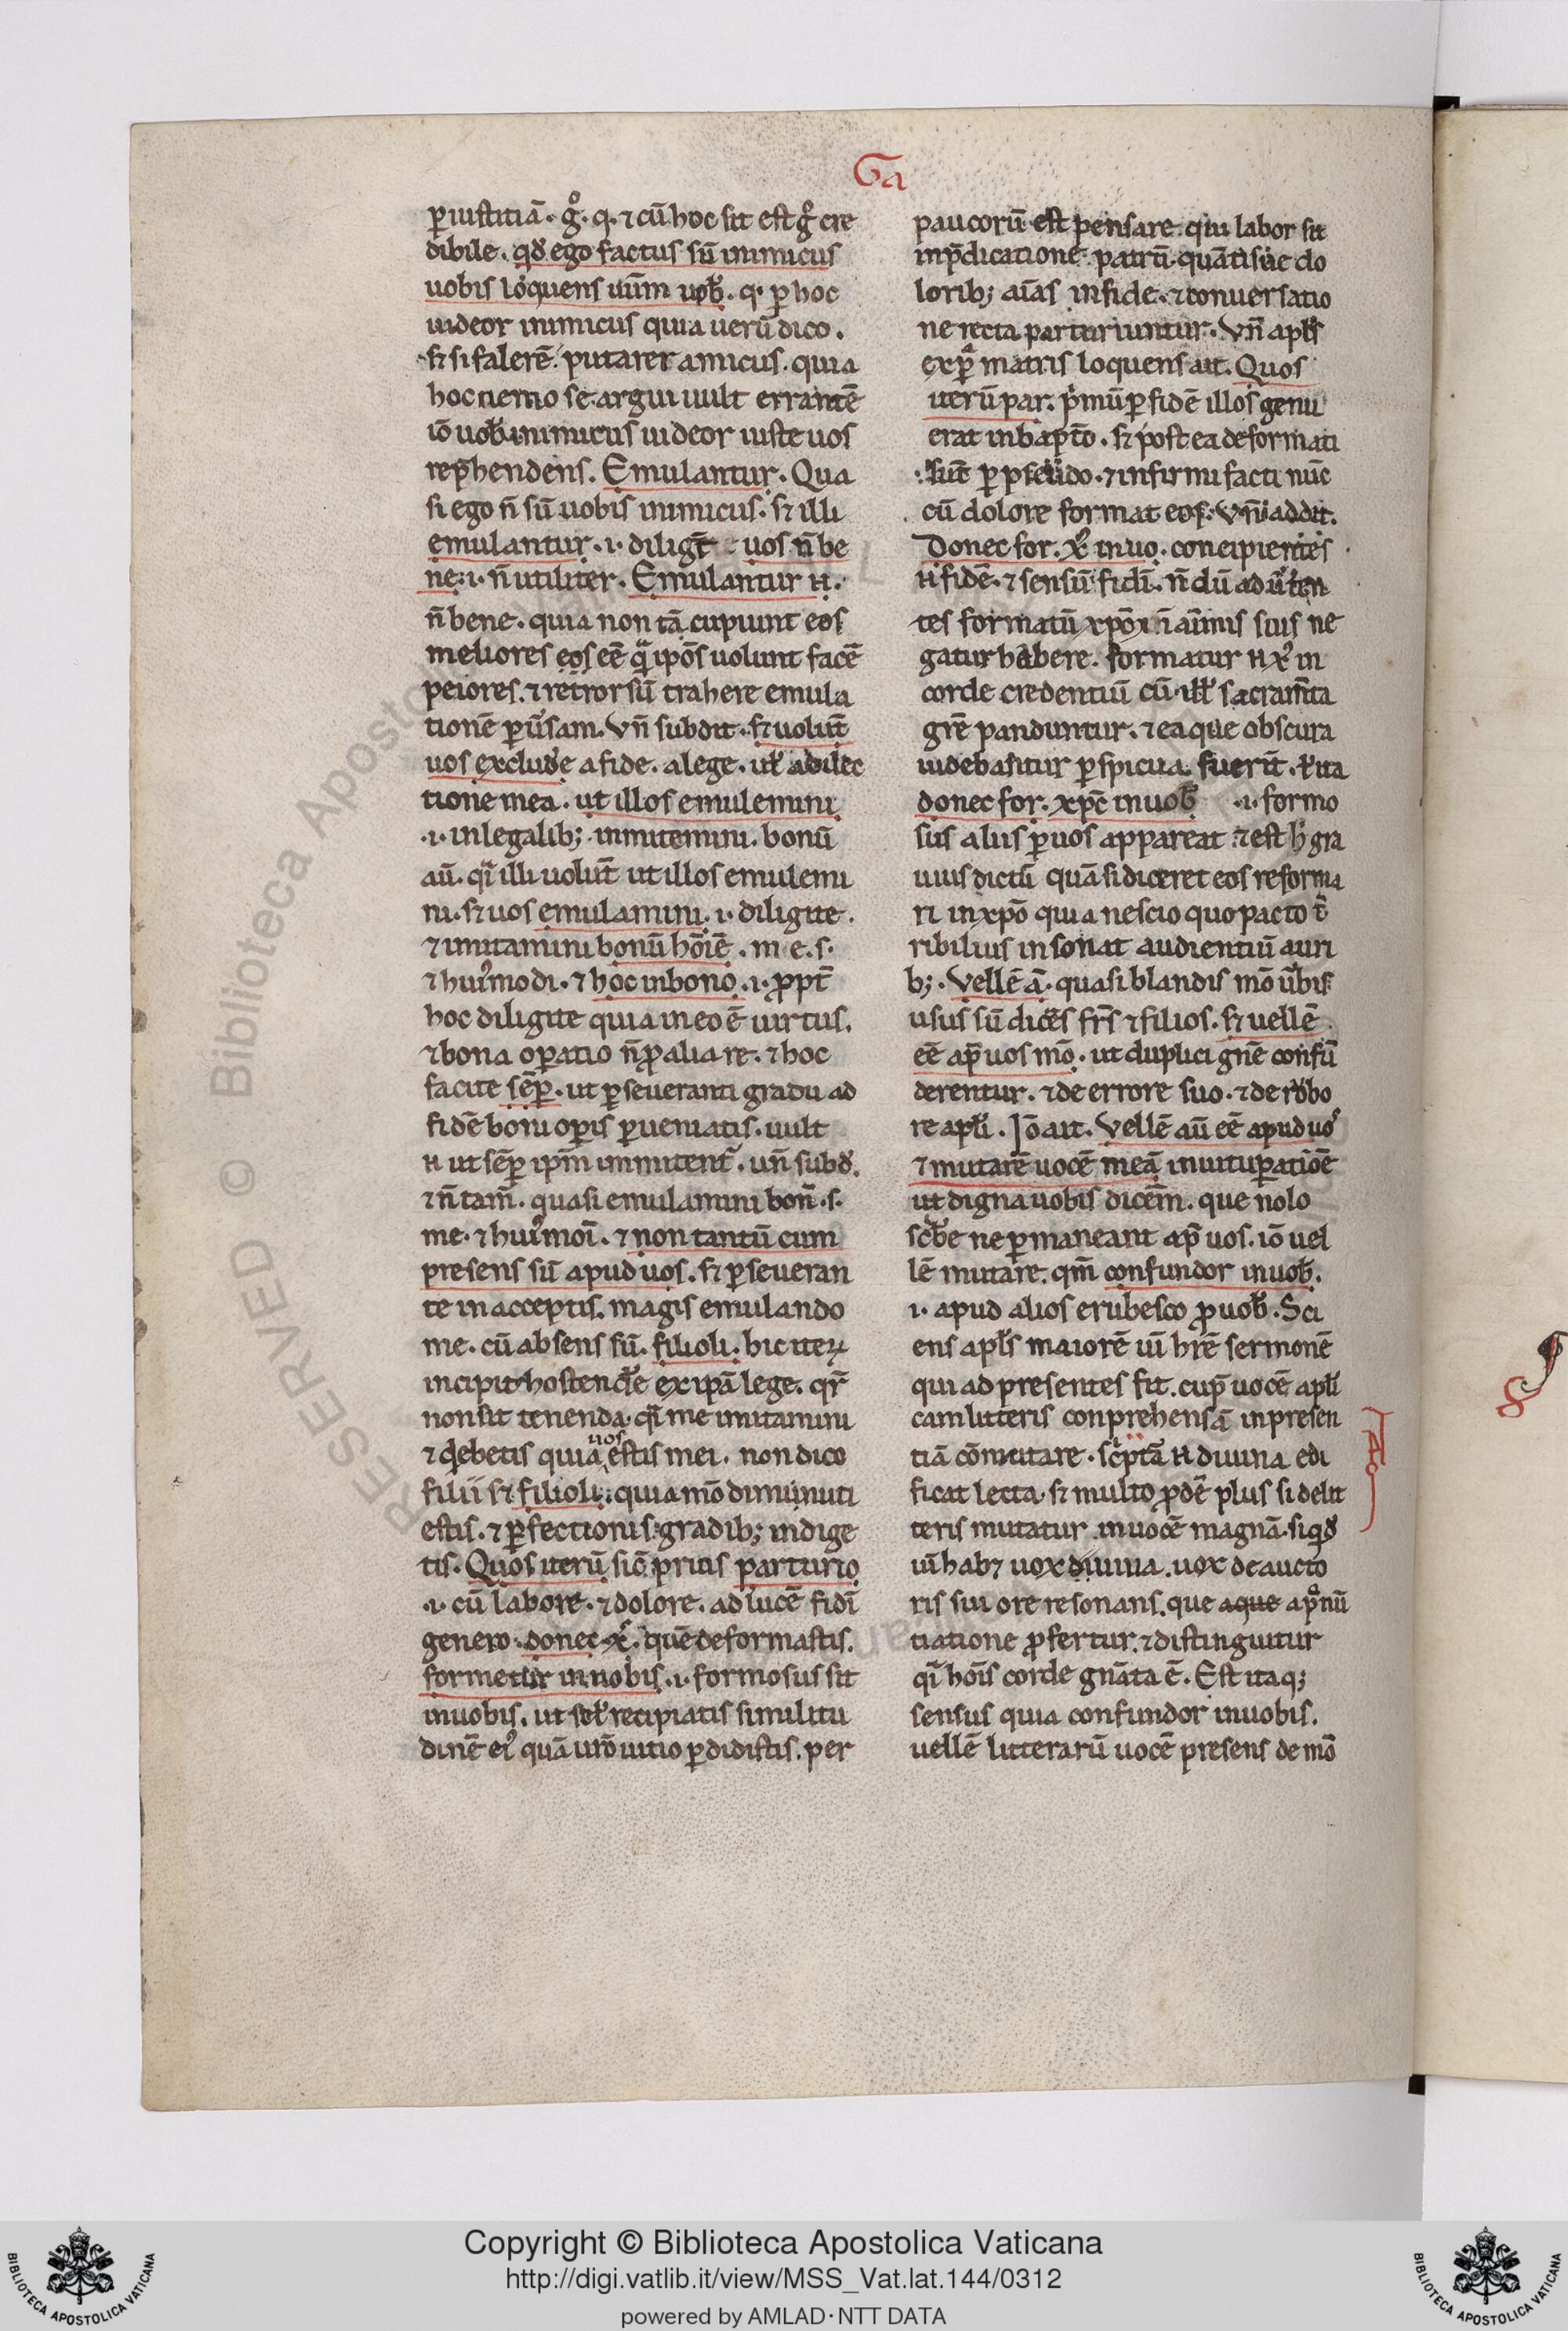 Ga
ꝑ iustitiā. g̊. q. ⁊ cū hoc sit est g̊ cre
dibile. qd̓ ego factus sū inimicus
uobis loquens uūm uob̓. q. ꝑ hoc
uideor inimicus quia uerū dico.
sꝫ si falerē. putarer amicus. quia
hoc nemo se argui uult errantē
iō uob̓ inimicus uideor iuste uos
rep̄hendens. Emulantur. Qua
si ego n̄ sū uobis inimicus. sꝫ illi
emulantur. i. diligt̄ uos n̄ be
ne. i. n̄ utiliter. Emulantur n.
n̄ bene. quia non tā cupiunt eos
meliores eos eē q̄ ipōs uolunt facē
peiores. ⁊ retrorsū trahere emula
tionē ꝑuersam. Vn̄ subdit. sꝫ uolūt
uos exclud̓e a fide. a lege. ul̓ a dilec
tione mea. ut illos emulemini
.i. in legalibꝫ. inmitemini. bonū
aū. qi illi uolūt ut illos emulemi
ni. sꝫ uos emulamini. i. diligite.
⁊ imitamini bonū hōiē. m e. s.
⁊ hui̓modi. ⁊ hoc in bono. i. ꝓpt̄
hoc diligite quia in eo ē uirtus.
⁊ bona oꝑatio n̄ ꝓ alia re. ⁊ hoc
facite sēꝑ. ut ꝑseueranti gradu ad
fidē boni oꝑis ꝑueniatis. uult
n ut sēꝑ ip̄m immitent̄. un̄ subd̓.
⁊ n̄ tam̄. quasi emulamini bon̄. s.
me. ⁊ hui̓moi. ⁊ non tantū cum
presens sū apud uos. sꝫ ꝑseueran
te in acceptis. magis emulando
me. cū absens sū. filioli. hic iteꝝ
incipit hostend̓e ex ipā lege. qr̄
non sit tenenda. qi me imitamini
⁊ debetis quia uos estis mei. non dico
filii sꝫ filioli. quia mō diminuti
estis. ⁊ ꝑfectionis gradibꝫ indige
tis. Quos iterū sic̄ prius parturio
.i. cū labore. ⁊ dolore. ad lucē fidi̓
genero. donec xc̄. quē deformastis.
formetur in nobis. i. formosus sit
in uobis. ut recipiatis similitu
dinē ei̓ quā ur̄o uitio ꝑdidistis. per
paucorū est pensare. qui labor sit
in p̄dicatione patrū. quātisue do
loribꝫ aīas in fide. ⁊ conuersatio
ne recta parturiuntur. Vn̄ apl̓s
ex ꝑ matris loquens ait. Quos
iterū par. p̓mū ꝑ fidē illos genu
erat in bapt̄o. sꝫ postea deformati
sunt ꝑ pseudo. ⁊ infirmi facti nūc
cū dolore format eos. Vn̄ addit.
Donec for. xc̄ in uo. concipientes
n fidē. ⁊ sensū fidi̓. n̄ dū aduerten
tes formatū xp̄o in aīmis suis ne
gatur habere. formatur n xc̄ in
corde credentiū cū ill̓ sacram̄ta
gr̄e panduntur. ⁊ ea que obscura
uidebantur ꝑspicua fuerīt. ul̓ ita
donec for. xp̄c in uob̓ .i. formo
sus aliis ꝑ uos appareat ⁊ est h̓ gra
uius dictū quā si diceret eos reforma
ri in xp̄o quia nescio quo pacto t̄
ribilius insonat audientiū auri
bꝫ. Vellē ā. quasi blandis mō ūbis
usus sū dicēs fr̄s ⁊ filios. sꝫ uellē
eē ap̄ uos mō. ut duplici gn̄e confū
derentur. ⁊ de errore suo. ⁊ de robo
re apl̓i. Iō ait. Vellē aū eē apud uos
⁊ mutarē uocē meā in uituꝑatiōē
ut digna uobis dicēm. que nolo
scb̓e ne ꝑmaneant ap̄ uos. iō uel
lē mutare. qm̄ confundor in uob̓.
.i. apud alios erubesco ꝓ uob̓. Sci
ens apl̓s maiorē uī hr̄e sermonē
qui ad presentes fit. cup̄ uocē apl̓i
cam litteris conprehensā in presen
tiā cōmutare. sc̓ptā n diuina edi
ficat lecta. sꝫ multo ꝓdē plus si de lit
teris mutatur in uocē magnā. siqd̓
uī habꝫ uox diuina. uox de aucto
ris sui ore resonans. que aque a ꝓnū
tiatione ꝓfertur. ⁊ distinguitur
qi hōis corde gnāta ē. Est itaqꝫ
sensus quia confundor in uobis.
uellē litterarū uocē presens de mō
RESERVED © Biblioteca Aposto
Copyright © Biblioteca Apostolica Vaticana
http://digi.vatlib.it/view/MSS_Vat.lat.144/0312
powered by AMLAD·NTT DATA
BIBLIOTECA APOSTOLICA VATICANA
BIBLIOTECA APOSTOLICA VATICANA